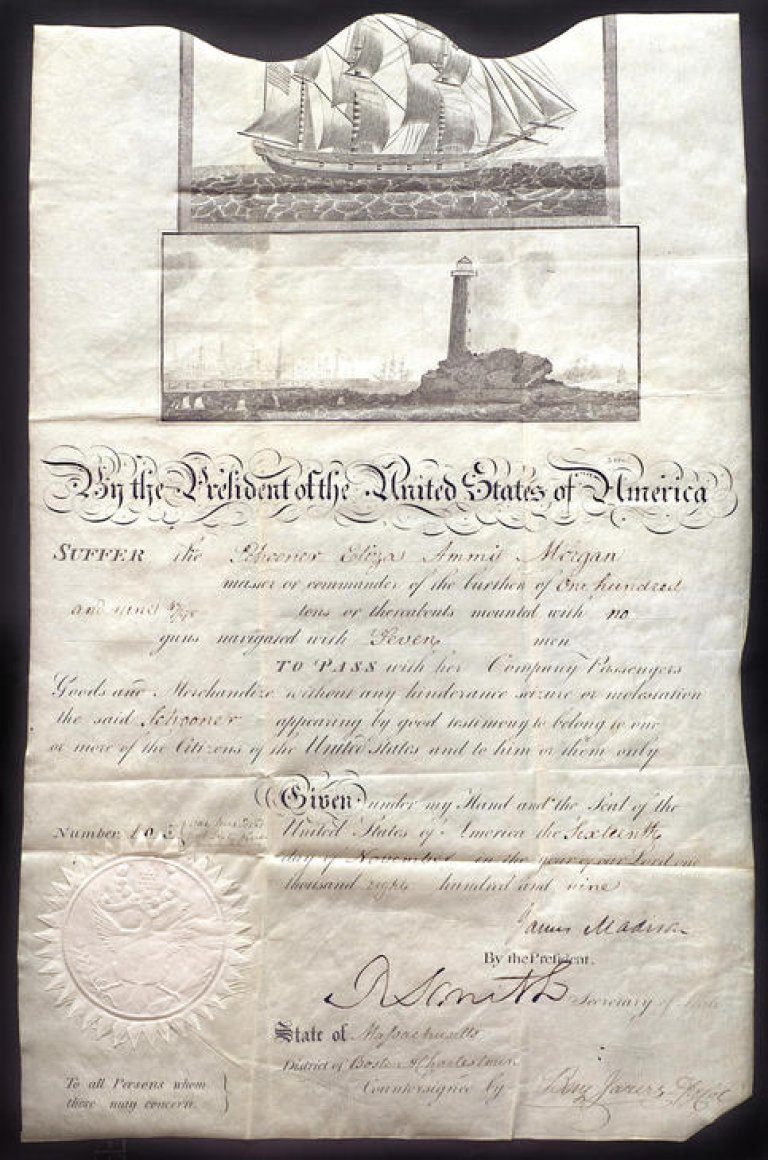 By the President of the United States of America
SUFFER the Schooner Eliza Ammi Morgan
master or commander of the burthen of One hundred
and nine tons or thereabouts mounted with no
guns navigated with Seven men
TO PASS with her Company Passengers
Goods and Merchandize without any hinderance seizure or molestation
the said Schooner appearing by good testimony to belong to one
or more of the Citizens of the United States and to him or them only
Given under my Hand and the Seal of the
Number
United States of America the Sixteenth
day of November in the year of our Lord one
thousand eight hundred and nine
James Madison
By the President.
R Smith Secretary of State
State of Massachusetts
District of Boston & Charlestown
To all Persons whom
these may concern.
Countersigned by